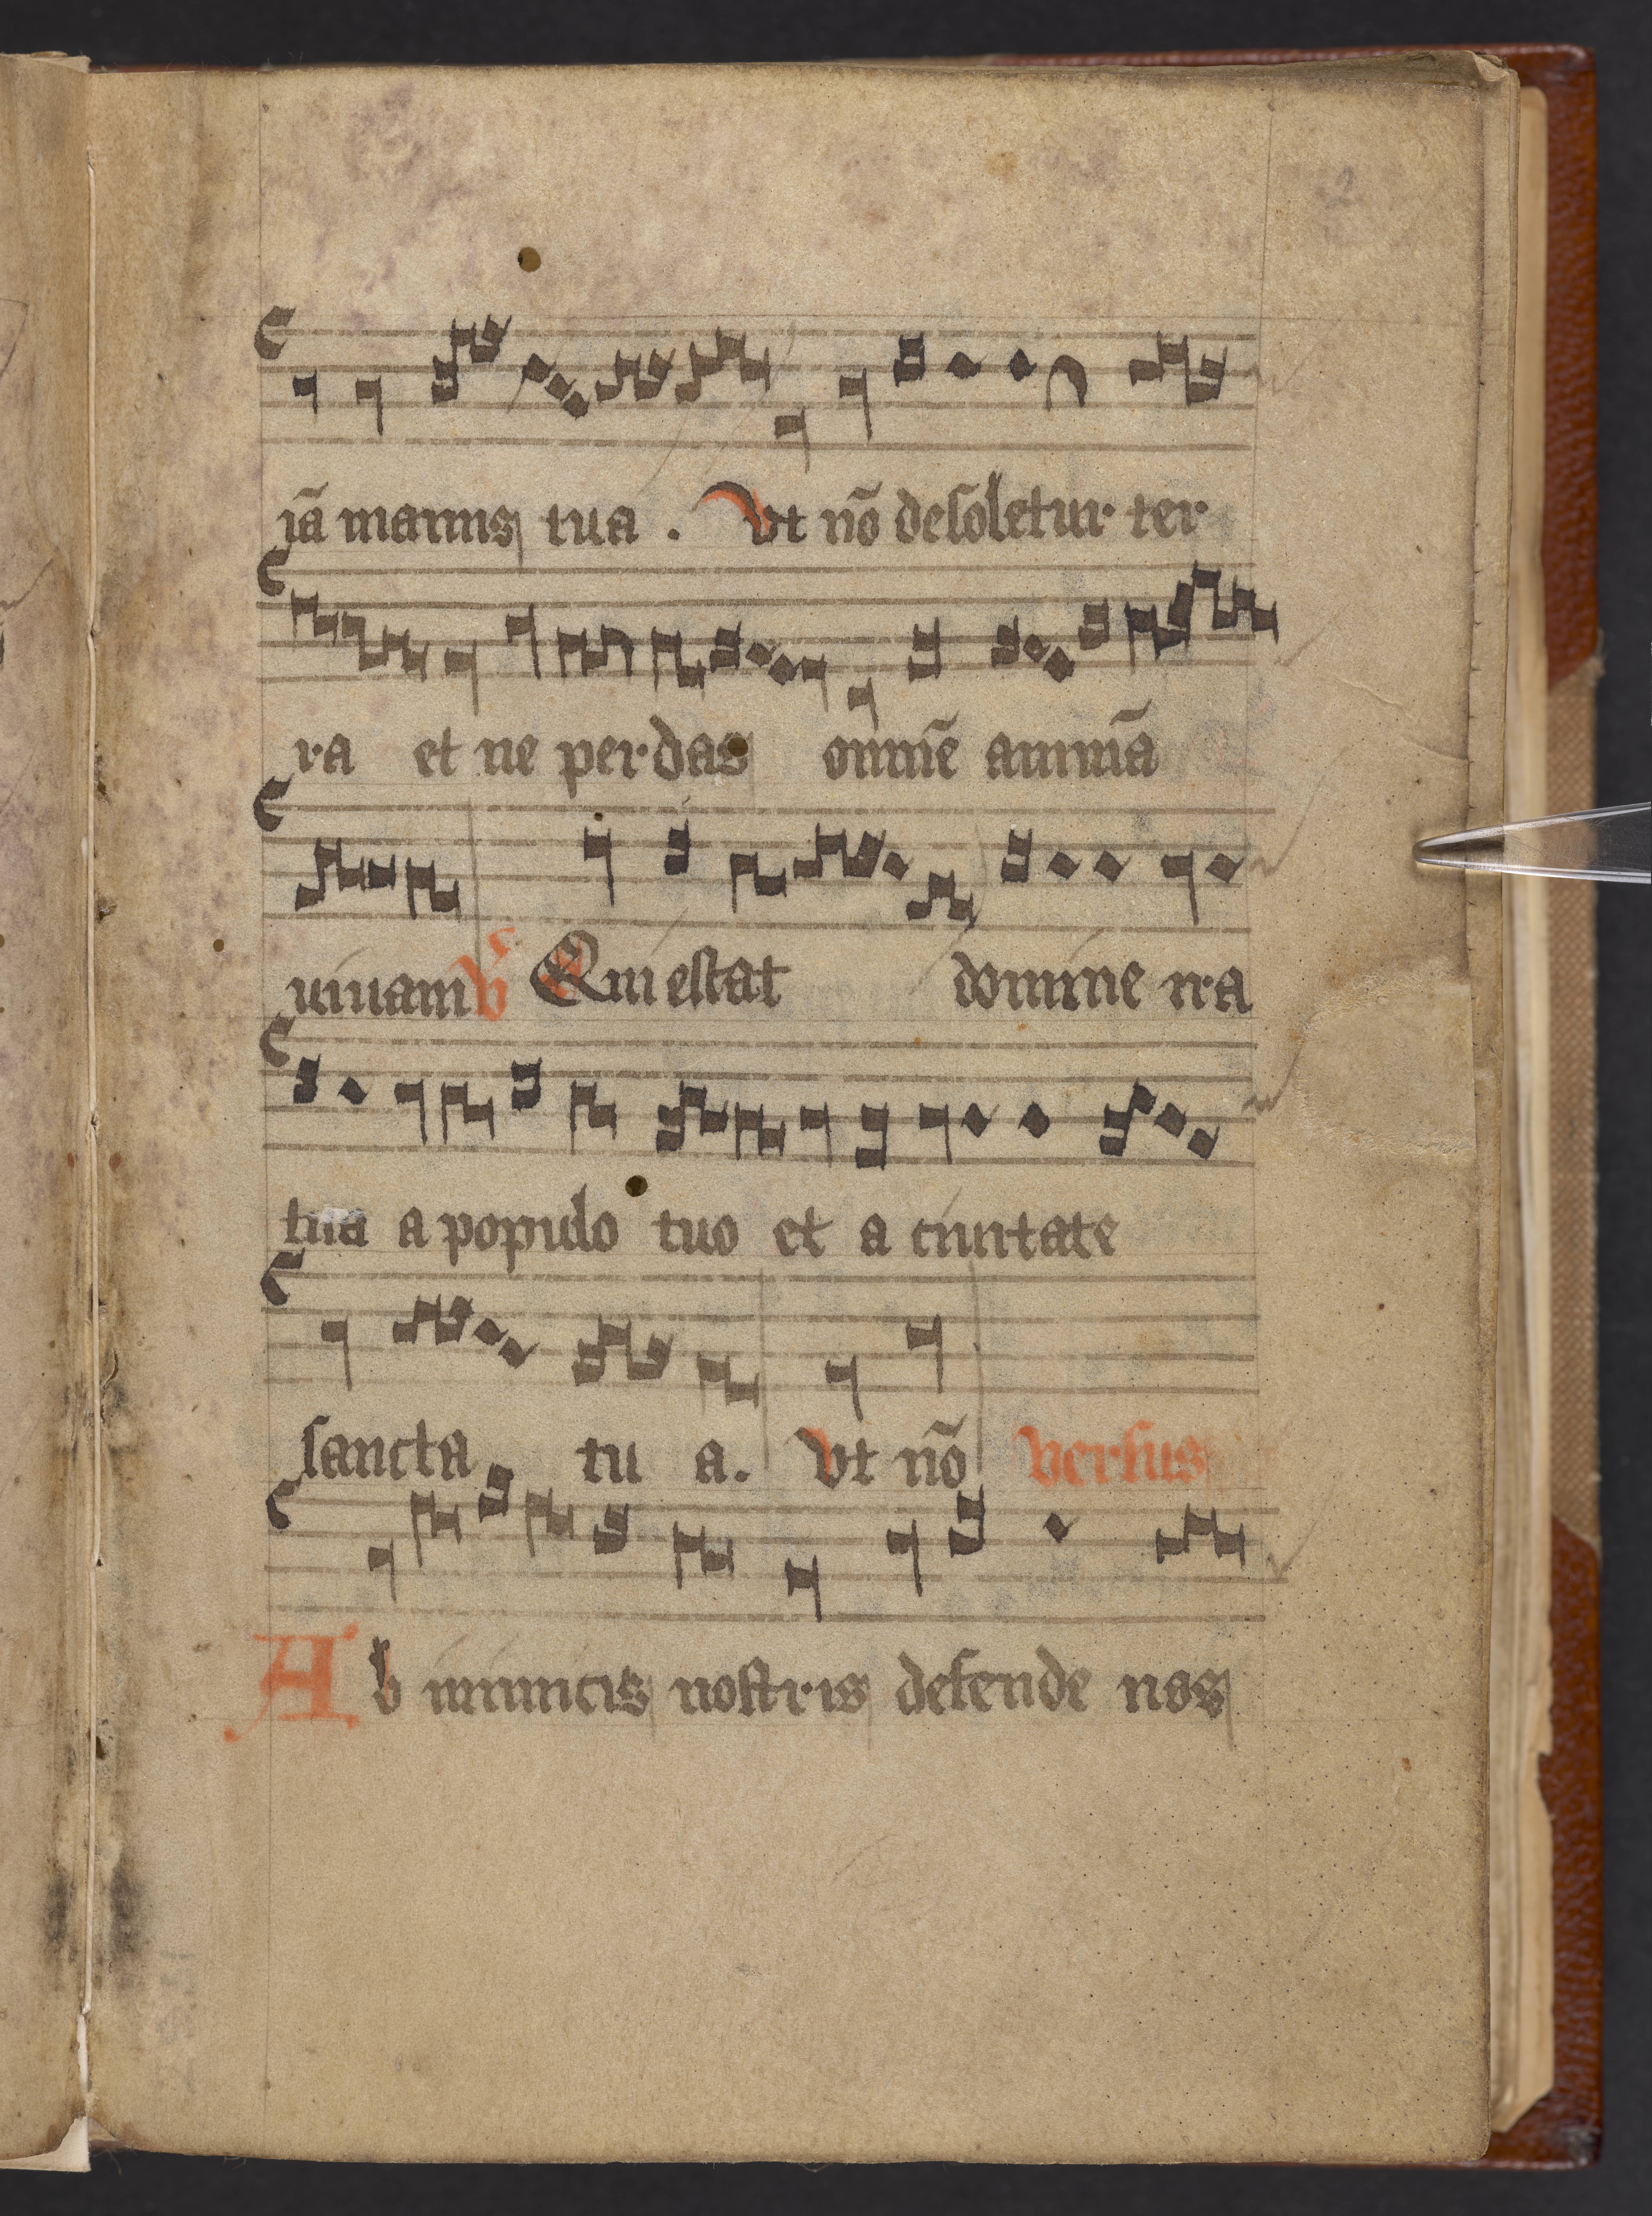 2
iā manus tua . Vt nō desoletur ter
ra et ne perdas omnē animā
uiuam v̄ Quiescat domine ira
tua a populo tuo et a ciuitate
sancta tu a. vt nō versus
Ab inimicis nostris defende nos